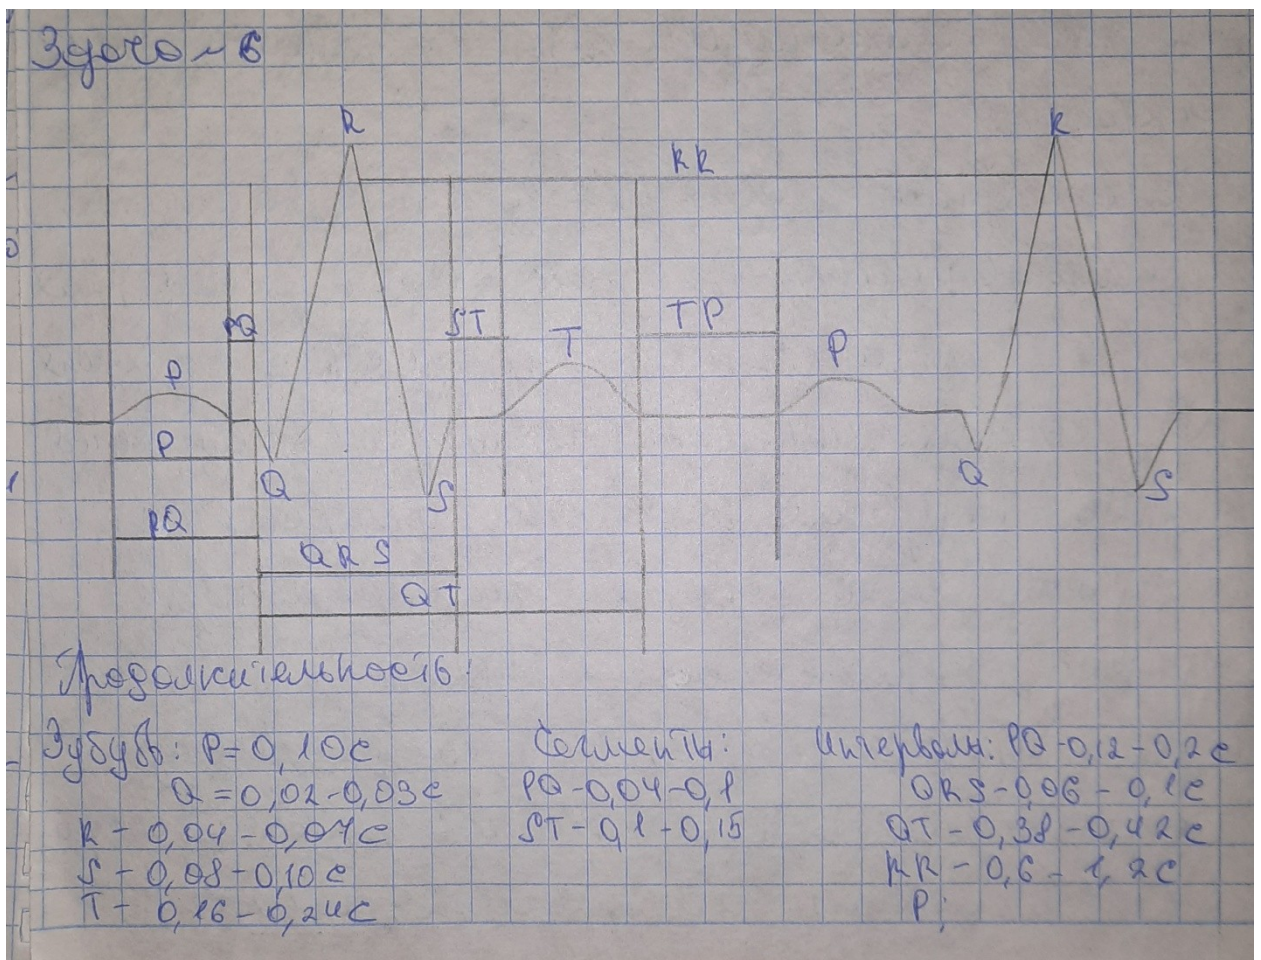 Здача - 6
R
R
RR
PQ
ST
T
TP
P
P
P
Q
S
Q
S
PQ
QRS
QT
Продолжительность:
Зубцы: P = 0,10с
Q = 0,02-0,03с
R - 0,04 - 0,07с
S - 0,08 - 0,10с
T - 0,16 - 0,24с
Сегменты:
PQ - 0,04 - 0,1
ST - 0,1 - 0,15
Интервалы: PQ - 0,12 - 0,2с
QRS - 0,06 - 0,1с
QT - 0,38 - 0,42с
RR - 0,6 - 1,2с
P;